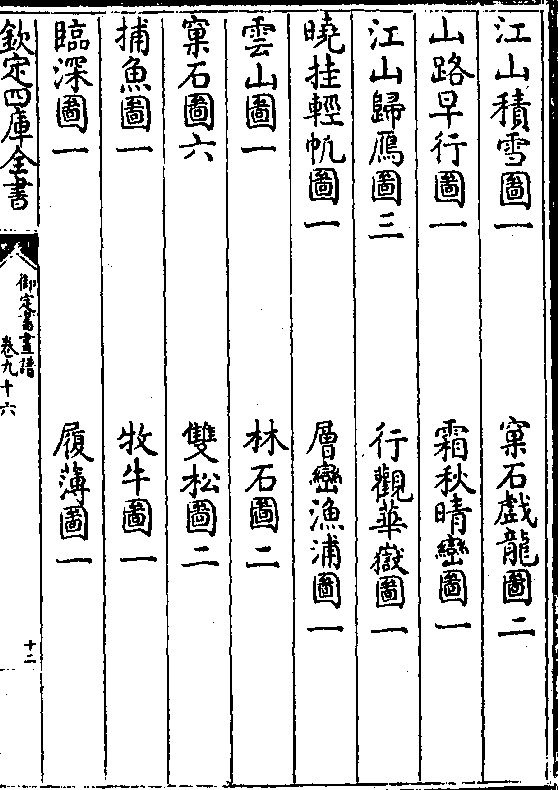 江山積雪圖一　窠石戲龍圖二
山路早行圖一　霜秋晴巒圖一
江山歸鴈圖三　行觀華嶽圖一
曉挂輕帆圖一　層巒漁浦圖一
雲山圖一　林石圖二
窠石圖六　雙松圖二
捕魚圖一　牧牛圖一
臨深圖一　履薄圖一
欽定四庫全書
御定書畫譜
卷九十六
十二